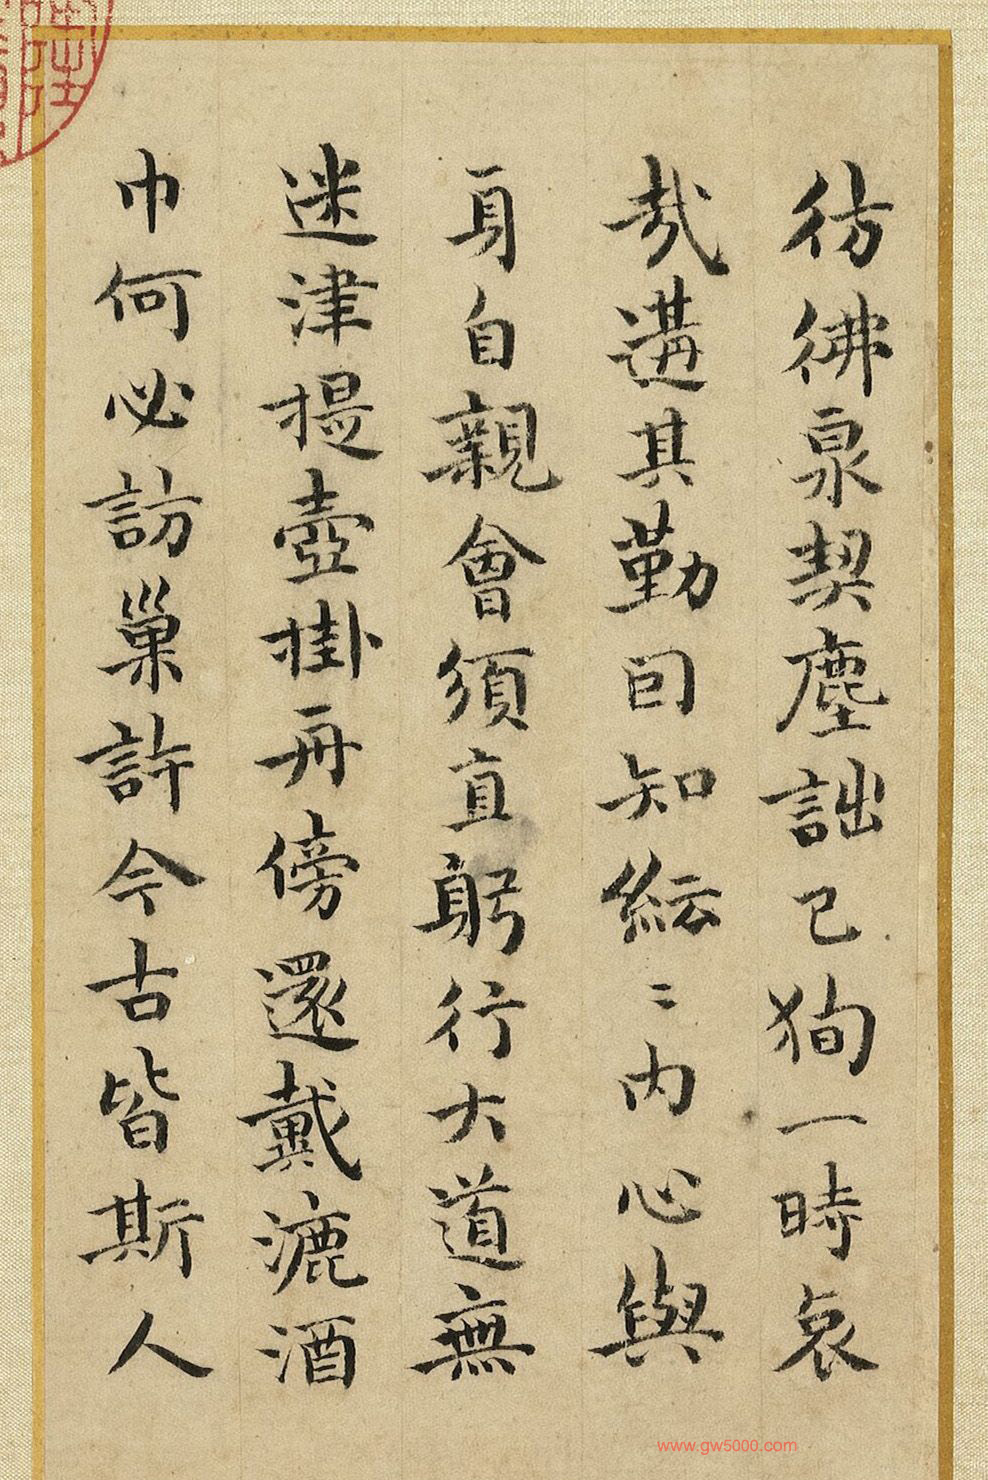 彷彿泉契塵詘已狥一時哀
哉遘其勤囙知紜〻內心與
身自親會須直躬行大道無
迷津提壺掛舟傍還戴漉酒
巾何必訪巢許今古皆斯人
www.gw5000.com